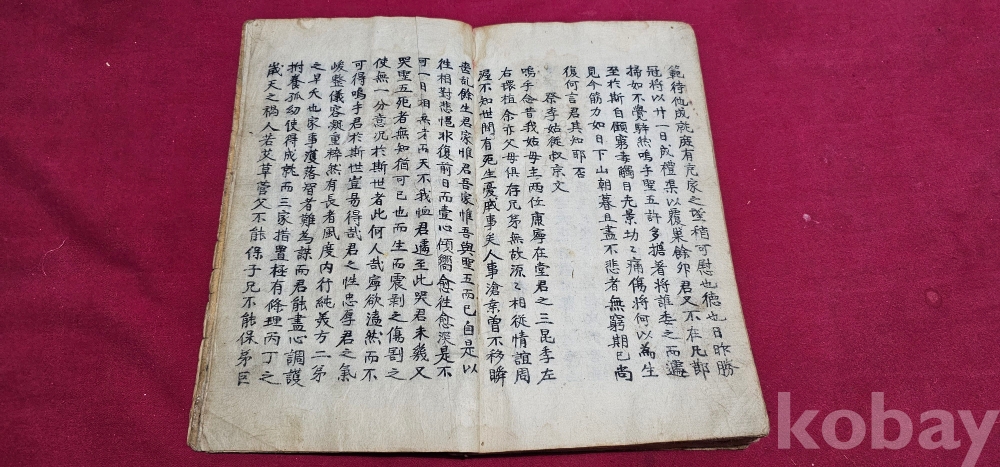 範待他成就庶有克家之望稍可慰也德也日昨勝
冠將以廿一日成禮渠以覆巢餘卵君又不在凡節
掃如不覺騂然嗚乎聖五許多擔著將誰委之而遽
至於斯自顧窮毒觸目光景功〻痛傷將何以為生
見今筋力如日下山朝暮且盡不悲者無窮期已尚
復何言君其知耶否
祭李姑從叔京文
嗚乎念昔我姑母主兩位康寧在堂君之三昆季左
右環植余亦父母俱存兄弟無故源〻相從情誼周
渥不知世間有死生憂戚事矣人事滄桑曾不移瞬
喬乱餘生君家惟君吾家惟吾與聖五而已自是以
徃相對悲悒非復前日而壹心傾嚮愈徃愈深是不
可一日相無才而天不我恤君遽至此哭君未幾又
哭聖五死者無知猶可已也而生而震剝之傷割之
使無一分意况於斯世者此何人哉寧欲溘然而不
可得嗚乎君於斯世豈易得哉君之性忠厚君之氣
峻整儀容凝重粹然有長者風度內行純義方二弟
之早夭也家事濩落習者難為謀而君能盡心調護
拊養孤幼使得成就而三家措置極有條理丙丁之
歲天之禍人若艾草菅父不能保子兄不能保弟臣
kobay